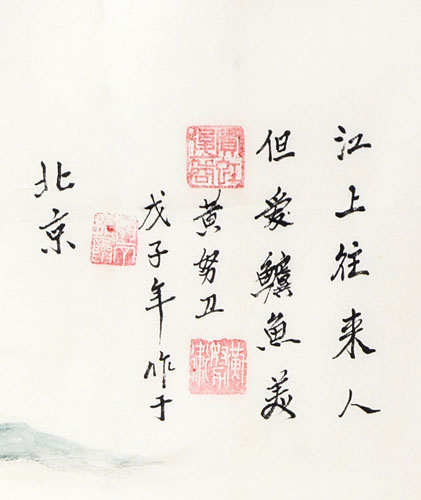 江上往来人
但爱鱸魚美
黄努卫
戊子年作于
北京